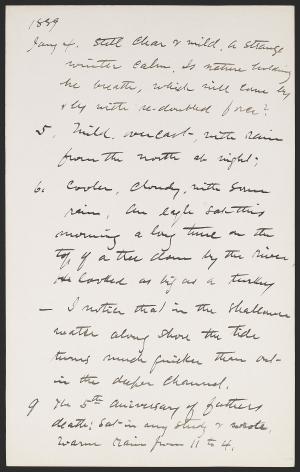 1889
Jany 4. Still clear & mild. A strange
winter calm. Is nature holding
her breath, which will come by
& by with re-doubled force?
5. Mild, overcast, with rain
from the north at night;
6. Cooler, cloudy, with some
rain, An eagle sat this
morning a long time on the
top of a tree down by the river
He looked as big as a turkey
— I notice that in the shallower
water along shore the tide
turns much quicker than out
in the deeper channel.
9 The 5th aniversary of fathers
death; Sat in my study & wrote.
Warm rain from 11 to 4.